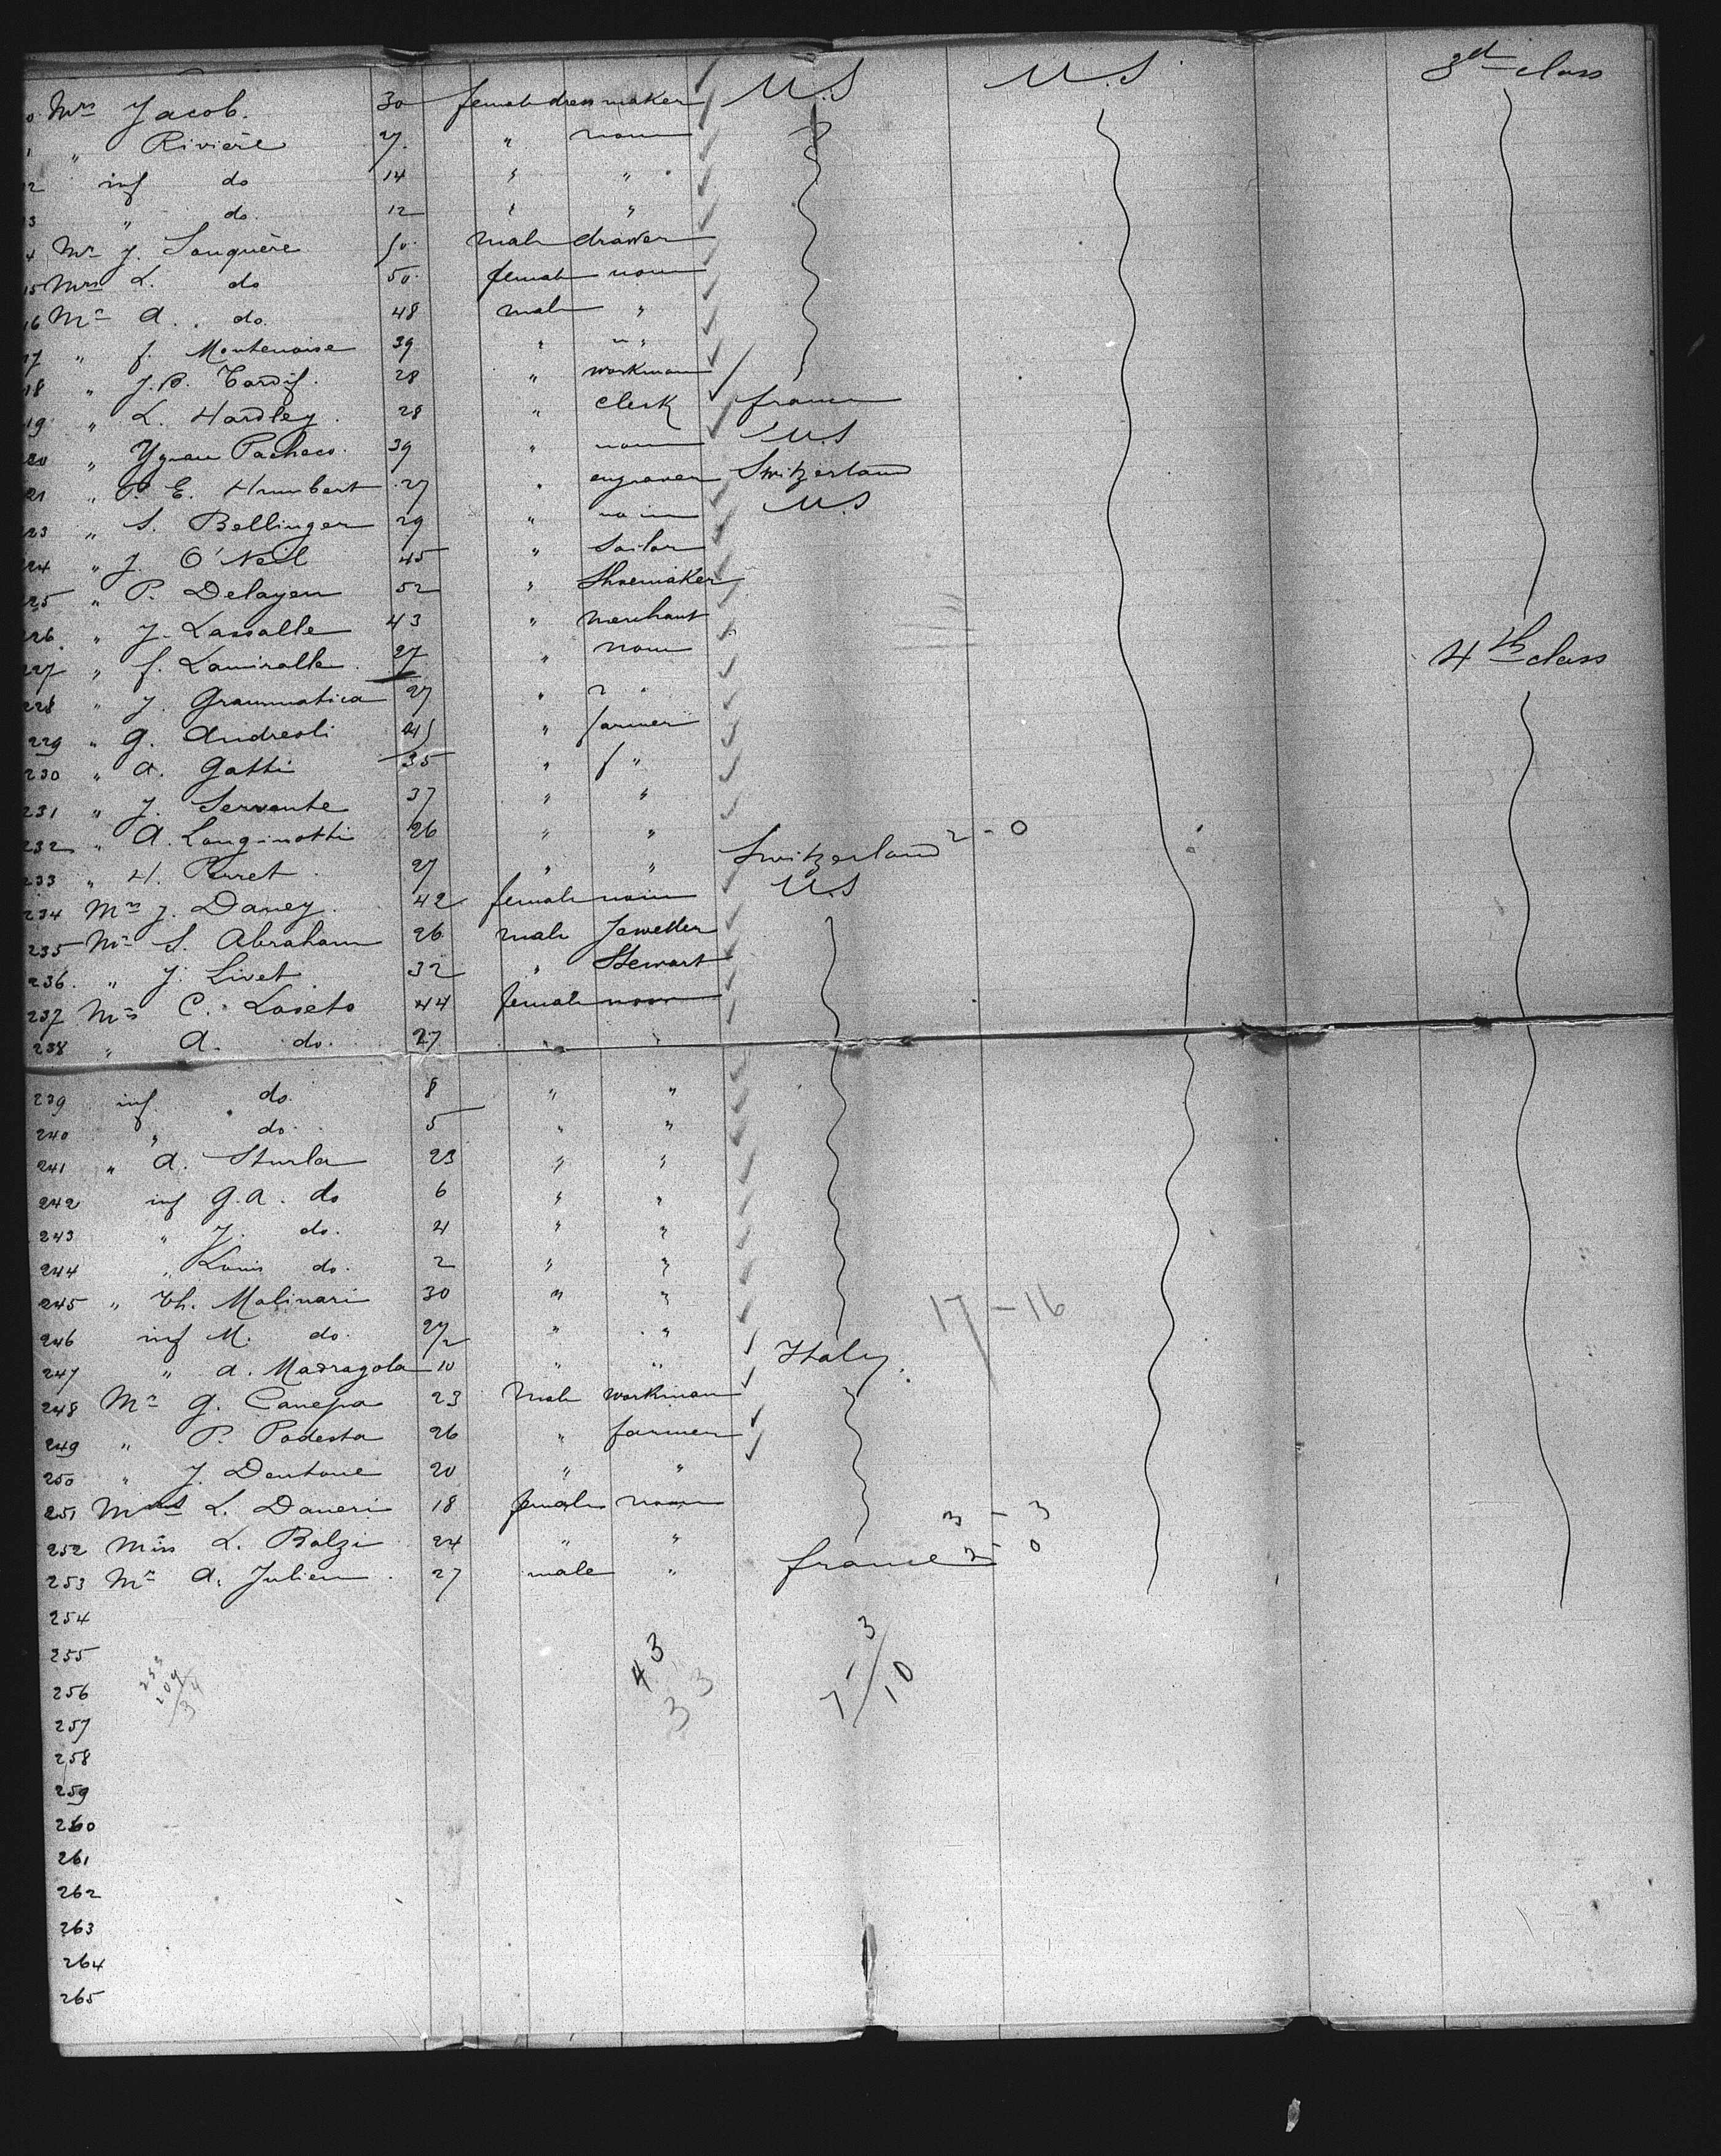 0 Mrs Jacob. 30 female dressmaker U.S U.S 3rd class
1 " Rivière 27. " none
12 inf do 14 " "
13 " do. 12 " "
4 Mr J. Souquère 50. male drawer
15 Mrs L. do 50. female none
16 Mr A. do. 48 male "
17 " f. Montenoise 39 " "
18 " J.B. Tardif. 28 " workman
19 " L. Hardley. 28 " clerk france
220 " Pacheco. 39 " none U.S
221 " P. E. Humbert 27 " engraver Switzerland
223 " S. Bellinger 29 " none U.S
224 " J. O'Neil 45 " Sailor
225 " P. Delayen 52 " Shoemaker
226 " J. Lassalle 43 " merchant
227 " f. Lamiralle. 27 " none 4th class
228 " J. Grammatica 27 " "
229 " G. Andreoli 45 " farmer
230 " A. Gatti 35 " "
231 " J. Servente 37 " "
232 " A. Longinotti 26 " "
233 " H. Perret. 27 " " Switzerland 2 - 0
234 Mrs J. Daney. 42 female none U.S
235 Mr S. Abraham 26 male Jeweller
236. " J. Livet 32 " Stewart
237 Mrs C. Laseto 44 female none
238 " A. do. 27 " "
239 inf. do. 8 " "
240 " do. 5 " "
241 " A. Sturla 23 " "
242 inf G.A. do 6 " "
243 " J. do. 4 " "
244 " Louis do. 2 " "
245 " Th. Molinari 30 " " 17 - 16
246 inf M. do. " "
247 " A. Madragola 10 " " Italy.
248 Mr G. Canepa 23 male workman
249 " P. Podesta 26 " farmer
250 " J. Dentone 20 " "
251 L. Daneri 18 female none
252 Miss L. Balzi 24 " " 3 - 3
253 Mr A. Julien. 27 male " france 0
254
255
253
209
34
43
33
3
7/10
256
257
258
259
260
261
262
263
264
265